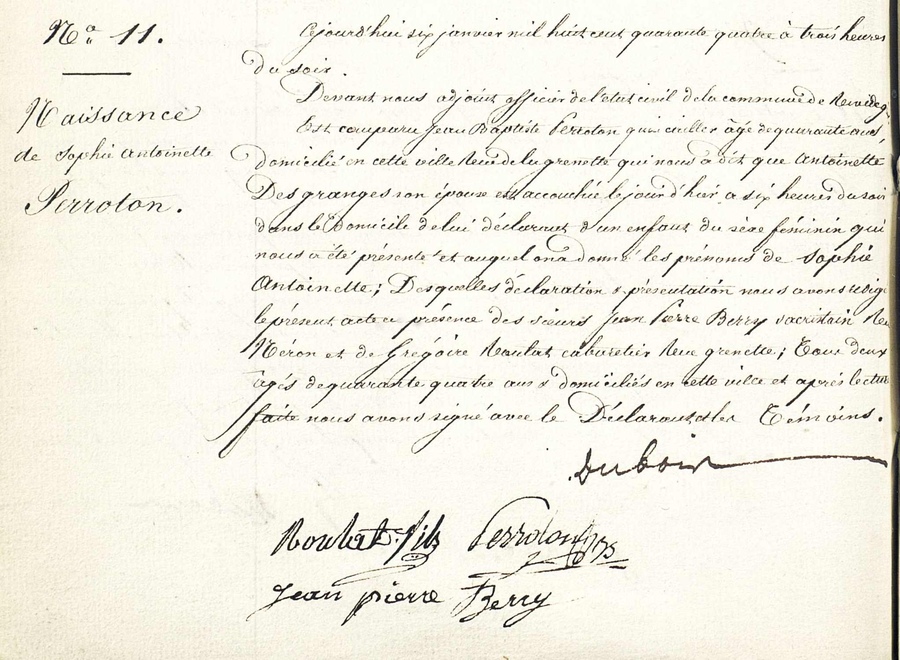 N.º 11.
Naissance
de Sophie Antoinette
Perroton.
Cejourd'hui six janvier mil huit cent quarante quatre à trois heures
du soir.
Devant nous adjoint officier de l'état civil de la commune de
Est comparu Jean Baptiste Perroton quincailler âgé de quarante ans,
domicilié en cette ville Rue de la grenette qui nous a dit que Antoinette
Desgranges son épouse est accouchée lejourd'hui a six heures du soir
dans le Domicile de lui déclarant d'un enfant du sèxe féminin qui
nous a été présenté et auquel on a donné les prénoms de Sophie
Antoinette; Desquelles déclaration & présentation nous avons rédigé
le présent acte en présence des sieurs Jean Pierre Berry sacristain Rue
Néron et de Grégoire Roulat cabaretier Rue grenette; Tous deux
agés de quarante quatre ans & domiciliés en cette ville et après lecture
faite nous avons signé avec le Déclarant & les Témoins.
Dubois
Roulat fils Perroton
Jean pierre Berry